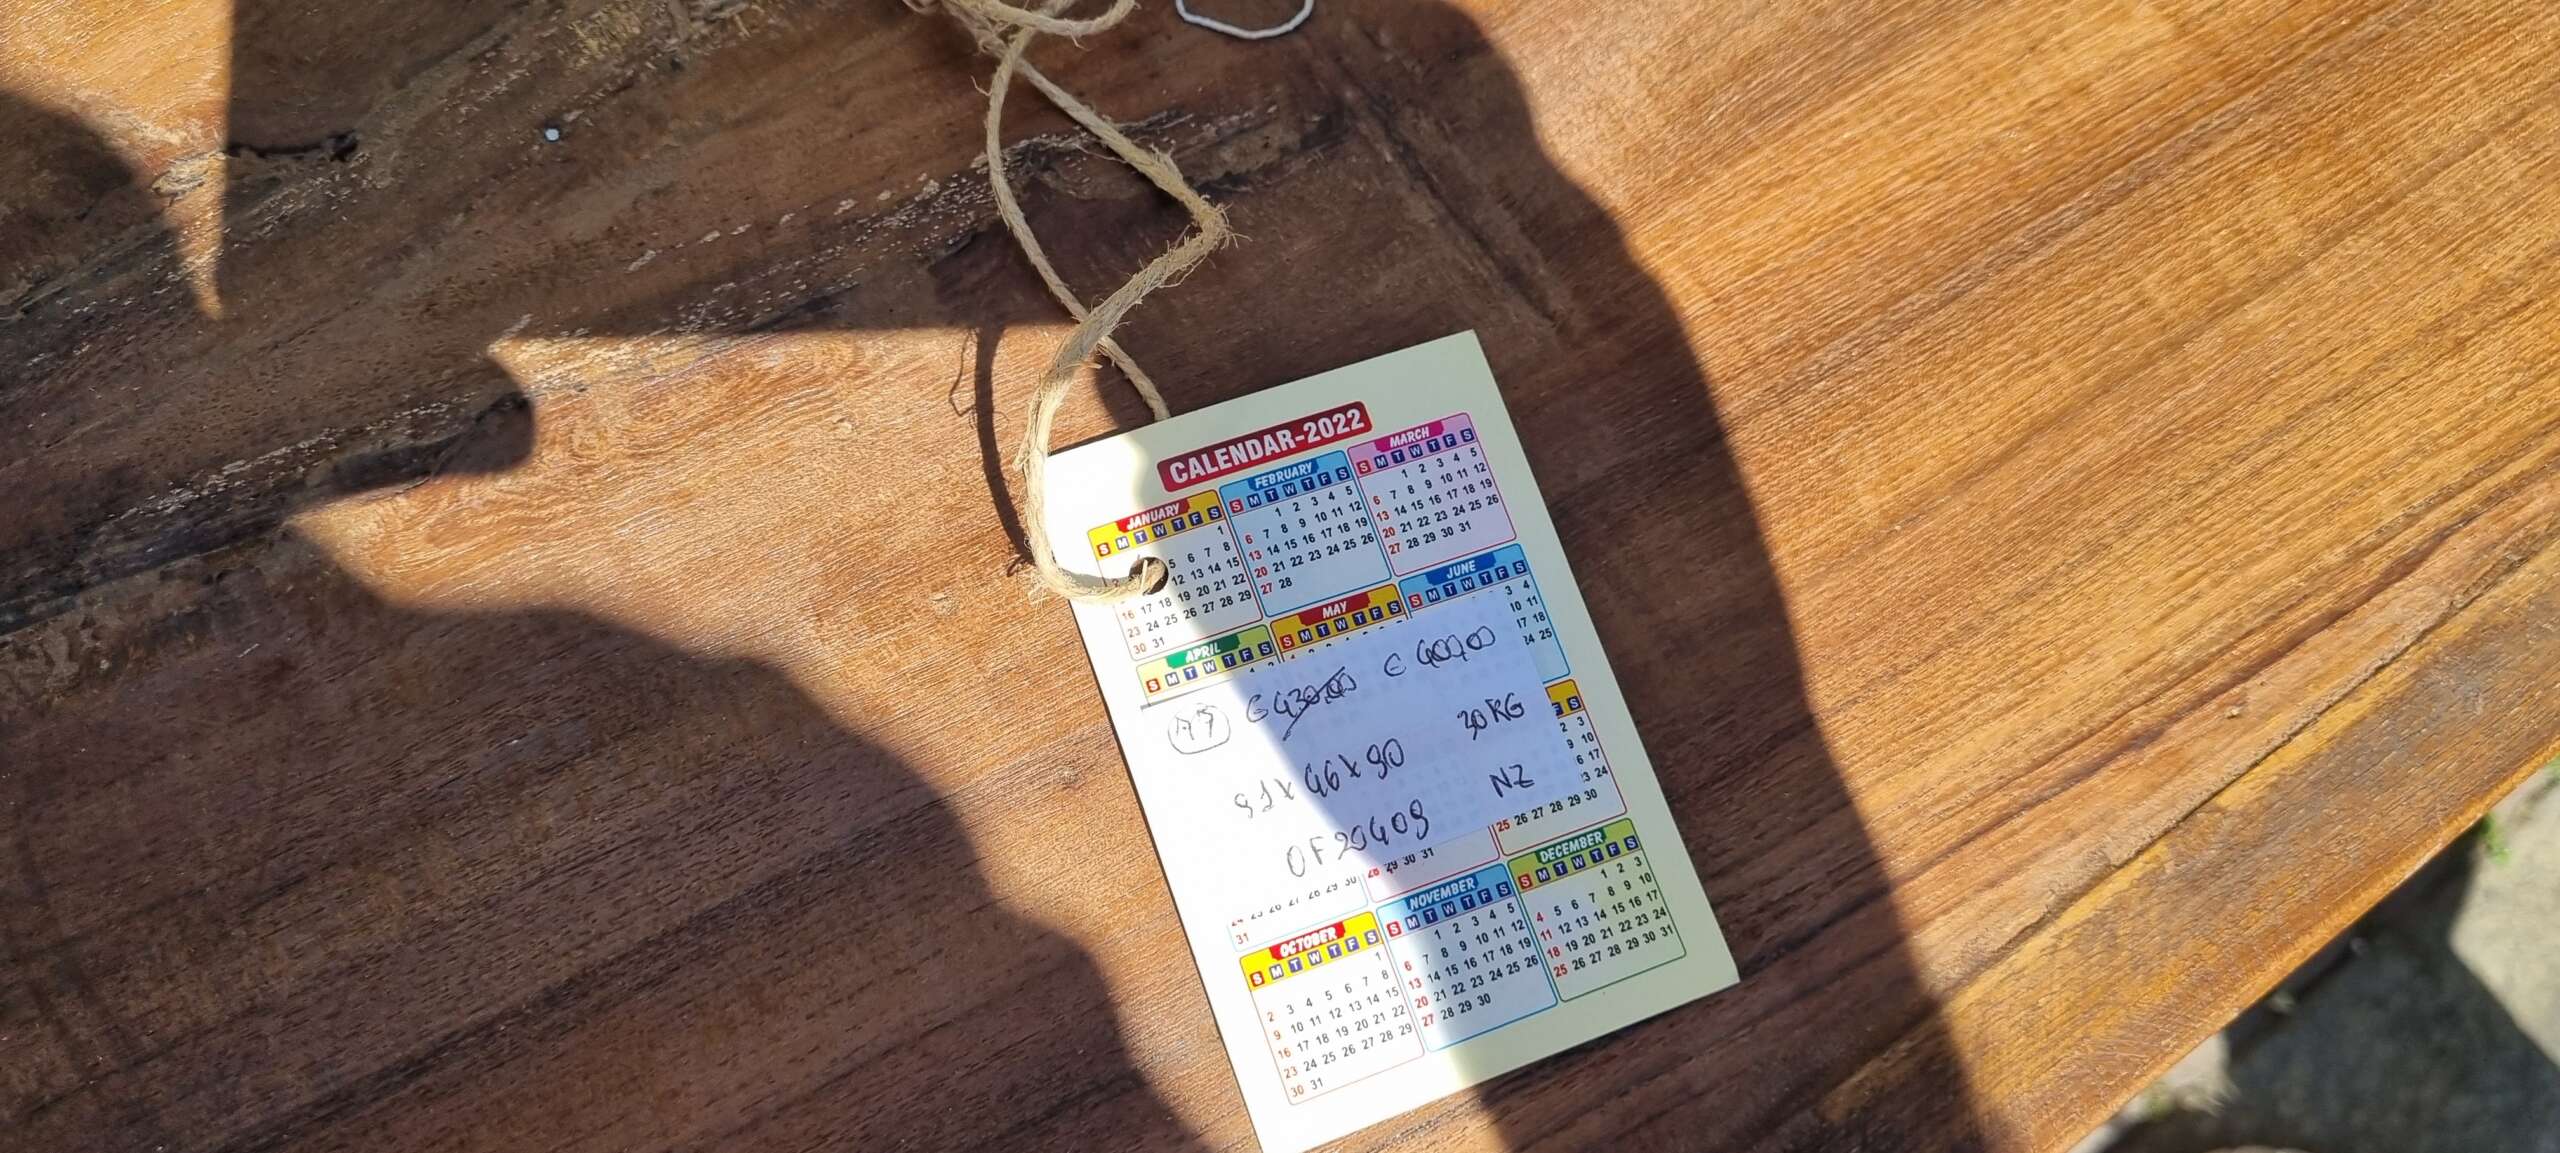 CALENDAR-2022
JANUARY FEBRUARY MARCH
S M T W T F S S M T W T F S S M T W T F S
1 1 2 3 4 5 1 2 3 4 5
5 6 7 8 6 7 8 9 10 11 12 6 7 8 9 10 11 12
12 13 14 15 13 14 15 16 17 18 19 13 14 15 16 17 18 19
16 17 18 19 20 21 22 20 21 22 23 24 25 26 20 21 22 23 24 25 26
23 24 25 26 27 28 29 27 28 27 28 29 30 31
30 31
APRIL MAY JUNE
S M T W T F S S M T W T F S S M T W T F S
3 4
10 11
17 18
24 25
€ 430,00 € 400,00
91 x 46 x 90 30 KG
OF29409 NZ
F S
2 3
9 10
16 17
23 24
25 26 27 28 29 30
28 29 30 31
31
OCTOBER NOVEMBER DECEMBER
S M T W T F S S M T W T F S S M T W T F S
1 1 2 3 4 5 1 2 3
2 3 4 5 6 7 8 6 7 8 9 10 11 12 4 5 6 7 8 9 10
9 10 11 12 13 14 15 13 14 15 16 17 18 19 11 12 13 14 15 16 17
16 17 18 19 20 21 22 20 21 22 23 24 25 26 18 19 20 21 22 23 24
23 24 25 26 27 28 29 27 28 29 30 25 26 27 28 29 30 31
30 31